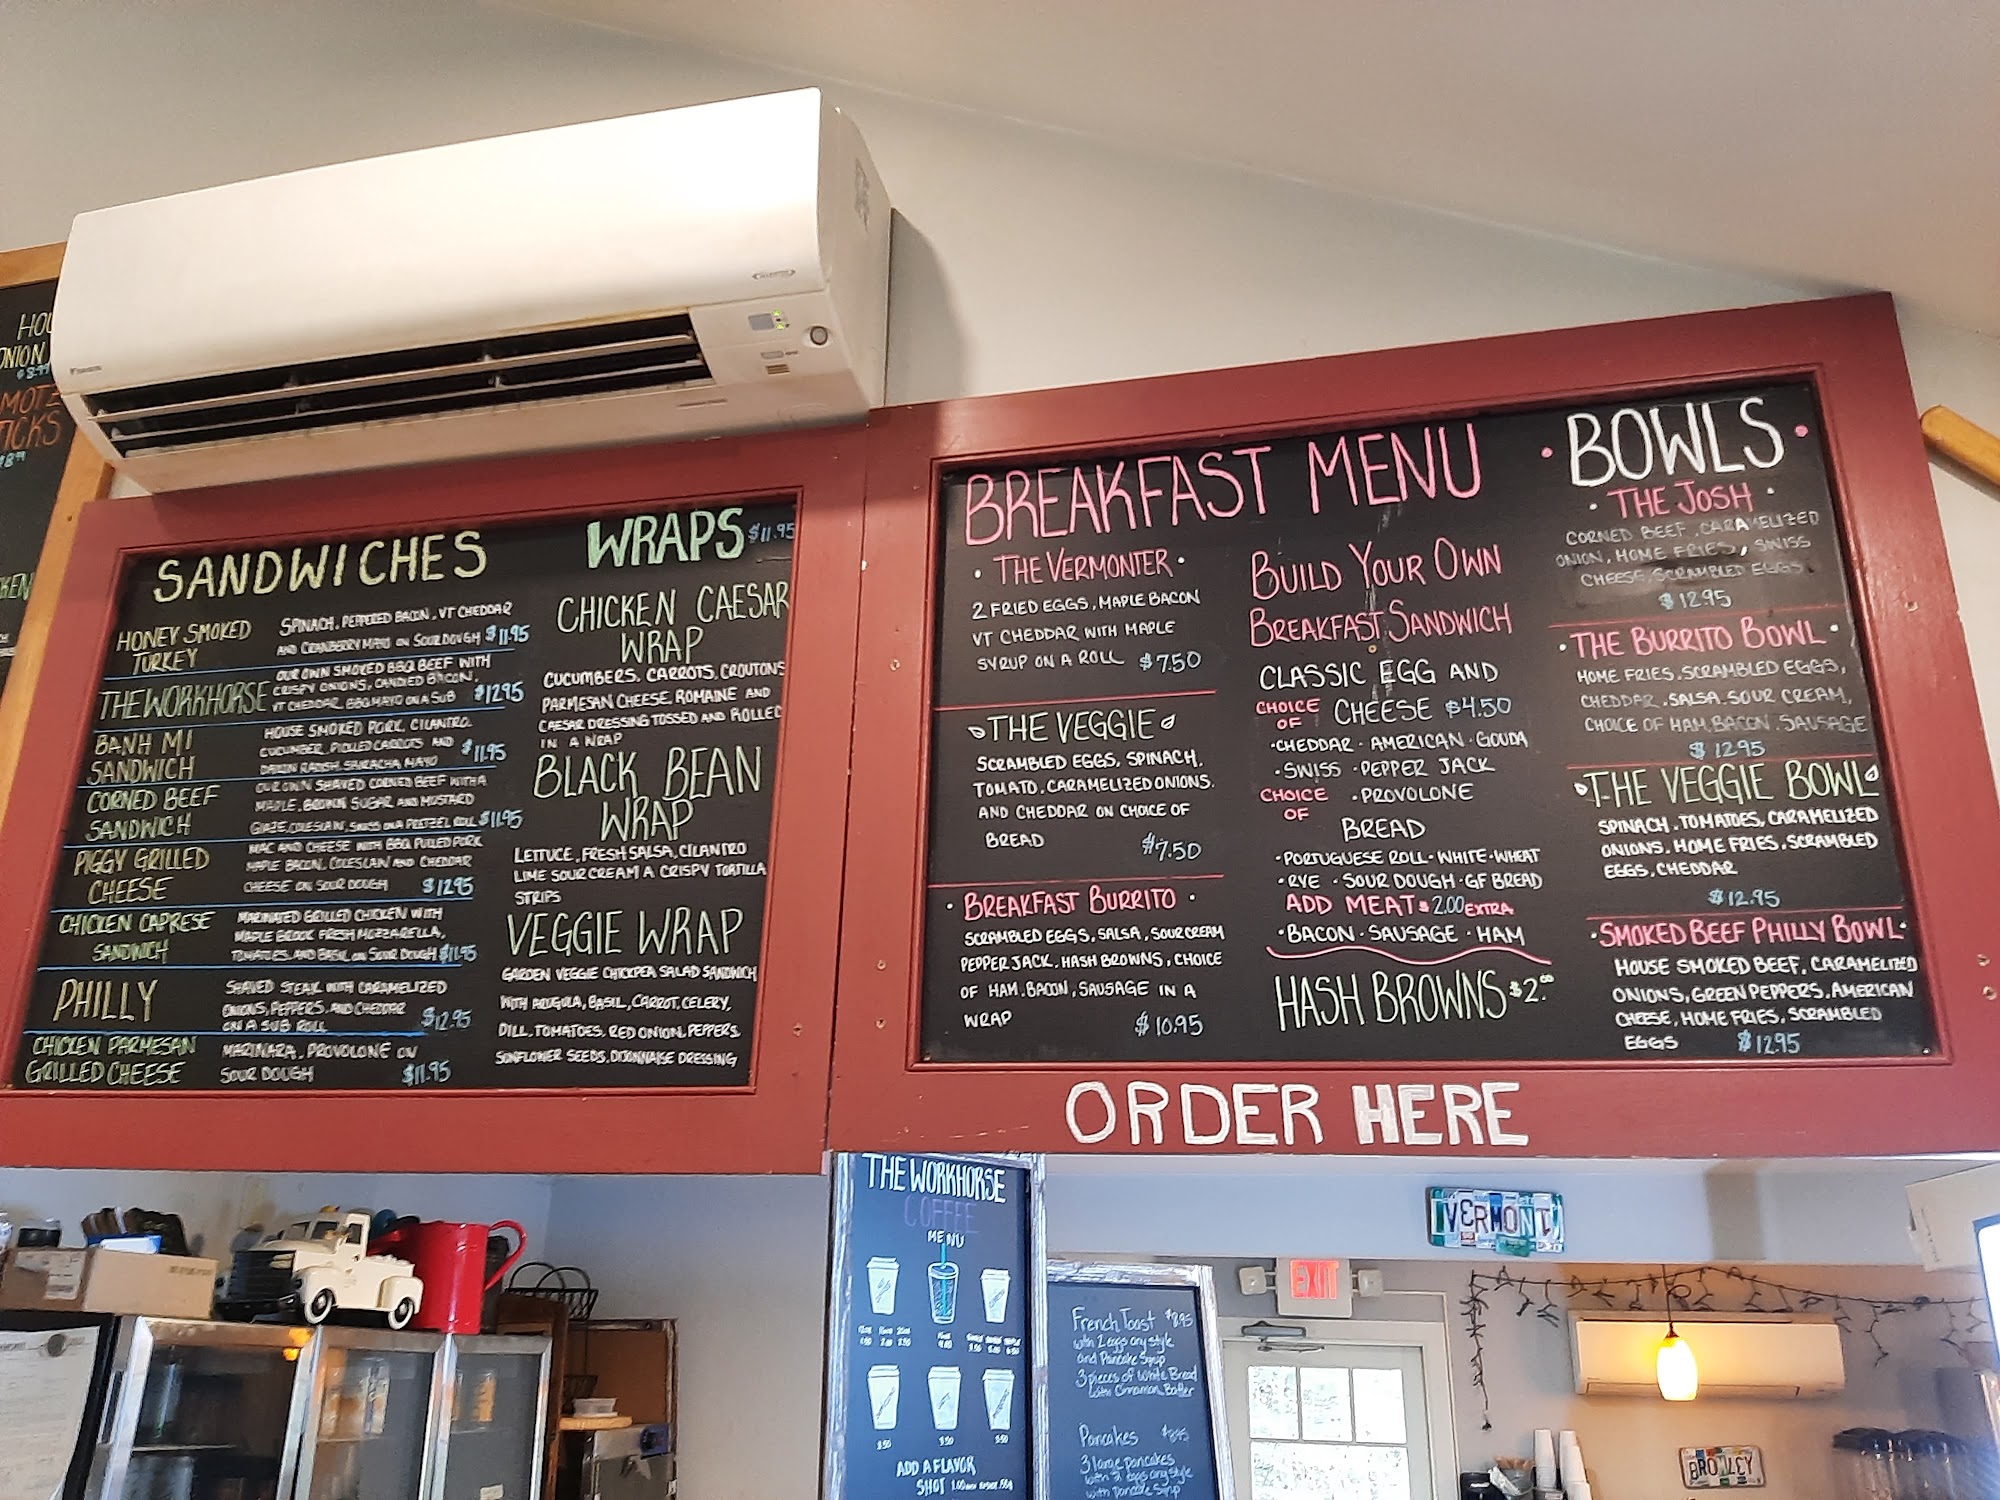 HOU
ONION
$8.99
MOTZ
TICKS
$8.99
KEN
SANDWICHES
HONEY SMOKED
TURKEY
SPINACH, PEPPERED BACON, VT CHEDDAR
AND CRANBERRY MAYO ON SOURDOUGH $11.95
THE WORKHORSE
OUR OWN SMOKED BBQ BEEF WITH
CRISPY ONIONS, CANDIED BACON,
VT CHEDDAR, BBQ MAYO ON A SUB $12.95
BANH MI
SANDWICH
HOUSE SMOKED PORK, CILANTRO,
CUCUMBER, PICKLED CARROTS AND
DAIKON RADISH, SRIRACHA, MAYO $11.95
CORNED BEEF
SANDWICH
OUR OWN SHAVED CORNED BEEF WITH A
MAPLE, BROWN SUGAR AND MUSTARD
GLAZE, COLESLAW, SWISS ON A PRETZEL ROLL $11.95
PIGGY GRILLED
CHEESE
MAC AND CHEESE WITH BBQ PULLED PORK
MAPLE BACON, COLESLAW AND CHEDDAR
CHEESE ON SOUR DOUGH $12.95
CHICKEN CAPRESE
SANDWICH
MARINATED GRILLED CHICKEN WITH
MAPLE BROOK FRESH MOZZARELLA,
TOMATOES, AND BASIL ON SOUR DOUGH $11.95
PHILLY
SHAVED STEAK WITH CARAMELIZED
ONIONS, PEPPERS, AND CHEDDAR
ON A SUB ROLL $12.95
CHICKEN PARMESAN
GRILLED CHEESE
MARINARA, PROVOLONE ON
SOUR DOUGH $11.95
WRAPS $11.95
CHICKEN CAESAR
WRAP
CUCUMBERS, CARROTS, CROUTONS
PARMESAN CHEESE, ROMAINE AND
CAESAR DRESSING TOSSED AND ROLLED
IN A WRAP
BLACK BEAN
WRAP
LETTUCE, FRESH SALSA, CILANTRO
LIME SOUR CREAM A CRISPY TORTILLA
STRIPS
VEGGIE WRAP
GARDEN VEGGIE CHICKPEA SALAD SANDWICH
WITH ARUGULA, BASIL, CARROT, CELERY,
DILL, TOMATOES, RED ONION, PEPPERS,
SUNFLOWER SEEDS, DIJONNAISE DRESSING
BREAKFAST MENU
• THE VERMONTER •
2 FRIED EGGS, MAPLE BACON
VT CHEDDAR WITH MAPLE
SYRUP ON A ROLL $7.50
THE VEGGIE
SCRAMBLED EGGS, SPINACH,
TOMATO, CARAMELIZED ONIONS,
AND CHEDDAR ON CHOICE OF
BREAD $7.50
• BREAKFAST BURRITO •
SCRAMBLED EGGS, SALSA, SOUR CREAM
PEPPER JACK, HASH BROWNS, CHOICE
OF HAM, BACON, SAUSAGE IN A
WRAP $10.95
BUILD YOUR OWN
BREAKFAST SANDWICH
CLASSIC EGG AND
CHOICE OF CHEESE $4.50
•CHEDDAR • AMERICAN • GOUDA
•SWISS •PEPPER JACK
•PROVOLONE
CHOICE OF BREAD
•PORTUGUESE ROLL•WHITE•WHEAT
•RYE •SOUR DOUGH•GF BREAD
ADD MEAT $2.00 EXTRA
•BACON • SAUSAGE • HAM
HASH BROWNS $2.00
• BOWLS •
• THE JOSH •
CORNED BEEF, CARAMELIZED
ONION, HOME FRIES, SWISS
CHEESE, SCRAMBLED EGGS
$12.95
•THE BURRITO BOWL•
HOME FRIES, SCRAMBLED EGGS,
CHEDDAR, SALSA, SOUR CREAM,
CHOICE OF HAM, BACON, SAUSAGE
$12.95
THE VEGGIE BOWL
SPINACH, TOMATOES, CARAMELIZED
ONIONS, HOME FRIES, SCRAMBLED
EGGS, CHEDDAR
$12.95
•SMOKED BEEF PHILLY BOWL•
HOUSE SMOKED BEEF, CARAMELIZED
ONIONS, GREEN PEPPERS, AMERICAN
CHEESE, HOME FRIES, SCRAMBLED
EGGS $12.95
ORDER HERE
THE WORKHORSE
COFFEE
MENU
ADD A FLAVOR
SHOT
French Toast $8.95
with 2 eggs any style
and Pancake Syrup
3 pieces of White Bread
with Cinnamon Batter
Pancakes $8.95
3 large pancakes
with 2 eggs any style
with pancake syrup
VERMONT
EXIT
BROWLEY